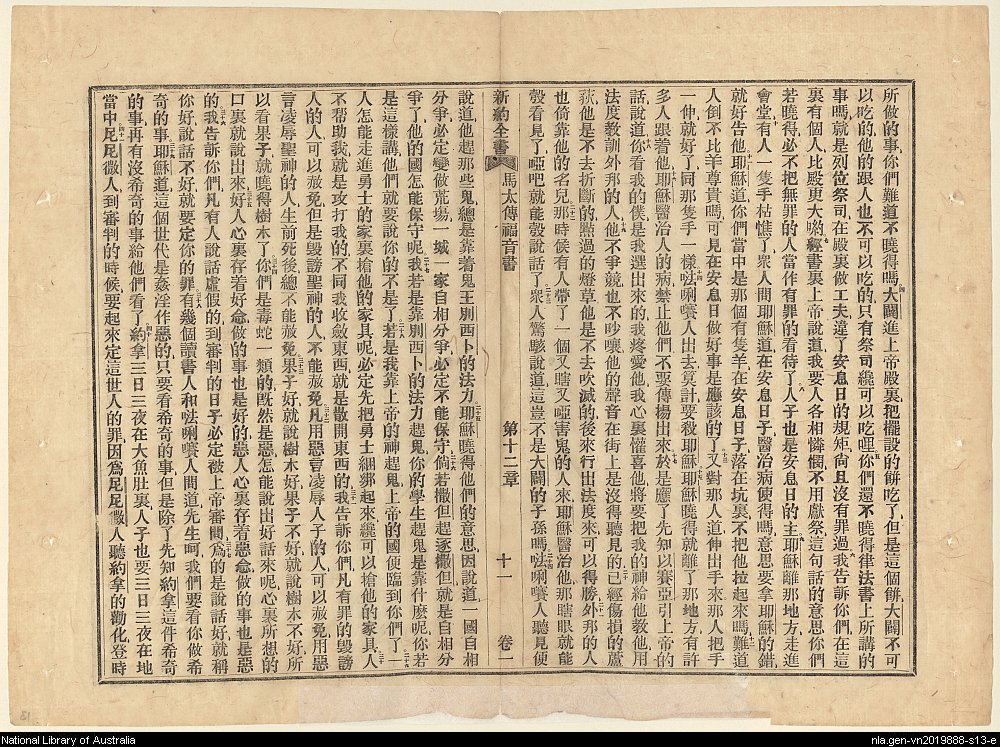 所做的事你們難道不曉得嗎大闢進上帝殿裏把擺設的餅吃了但是這個餅大闢不可
以吃的他的跟人也不可以吃的只有祭司纔可以吃哩你們還不曉得律法書上所講的
事嗎就是列位祭司在殿裏做工夫違了安息日的規矩尙且沒有罪過我告訴你們在這
裏有個人比殿更大喲經書裏上帝說道我要人各相憐憫不用獻祭這句話的意思你們
若曉得必不把無罪的人當作有罪的看待了人子也是安息日的主耶穌離那地方走進
會堂有人一隻手枯憔了衆人問耶穌道在安息日子醫治病使得嗎意思要拿耶穌的錯
就好告他耶穌道你們當中是那個有隻羊在安息日子落在坑裏不把他拉起來嗎難道
人倒不比羊尊貴嗎可見在安息日做好事是應該的了又對那人道伸出手來那人把手
一伸就好了同那隻手一樣唎人出去莫計要殺耶穌耶穌曉得就離了那地方有許
多人跟着他耶穌醫人的病禁止他們不要傳楊出來於是應了先知以賽亞引上帝的
話說道你看我的僕是我選出來的我疼愛他我心裏懽喜他將要把我的神給他教他用
法度教訓外邦的人他不爭競也不吵嚷他的聲音在街上是沒得聽見的已經傷損的蘆
荻他是不去折斷的點過的燈草他是不去吹滅的後來行出法度來可以得勝外邦的人
也倚靠他的名兒那時候有人帶了一個又瞎又啞害鬼的人來耶穌醫治他那瞎眼就能
彀看見了啞吧就能彀說話了衆人驚駭說道這豈不是大闢的子孫嗎唎人聽見便
新約全書 馬太傳福音書 第十二章 十一 卷一
說道他趕那些鬼總是靠着鬼王別西卜的法力耶穌曉得他們的意思因說道一國自相
分爭必定變做荒塲一城一家自相分爭必定不能保守倘若撒但趕逐撒但就是自相分
爭了他的國怎能保守呢我若是靠別西卜的法力趕鬼你的學生趕鬼是靠什麽呢你若
是這樣講他們就要說你的不是了若是我靠上帝的神趕鬼上帝的國便臨到你們了
人怎能走進勇士的家裏搶他的家具呢必定先把勇士綑綁起來纔可以搶他的家具人
不帮助我就是攻打我的不同我收斂東西就是散開東西的我告訴你們凡有罪的毀謗
人的人可以赦免但是毀謗聖神的人不能赦免凡用惡言凌辱人子的人可以赦免用惡
言凌辱聖神的人生前死後總不能赦免果子好就說樹木好果子不好就說樹木不好所
以看果子就曉得樹木了你們是毒蛇一類的旣然是惡怎能說出好話來呢心裏所想的
口裏就說出來好人心裏存着好念做的事也是好的惡人心裏存着惡念做的事也是惡
的我告訴你們凡有人說話虛假的到審判的日子必定被上帝審問爲的是說話好就稱
你好說話不好就要定你的罪有幾個讀書人和唎人問道先生呵我們要看你做希
奇的事耶穌道這個世代是姦淫作惡的只要看希奇的事但是除了先知約拿這件希奇
的事再有沒希奇的事給他們看了約拿三日三夜在大魚肚裏人子也要三日三夜在地
當中尼尼微人到審判的時候要起來定這世人的罪因爲尼尼微人聽約拿的勸化登時
National Library of Australia
nla.gen-vn2019888-s13-e